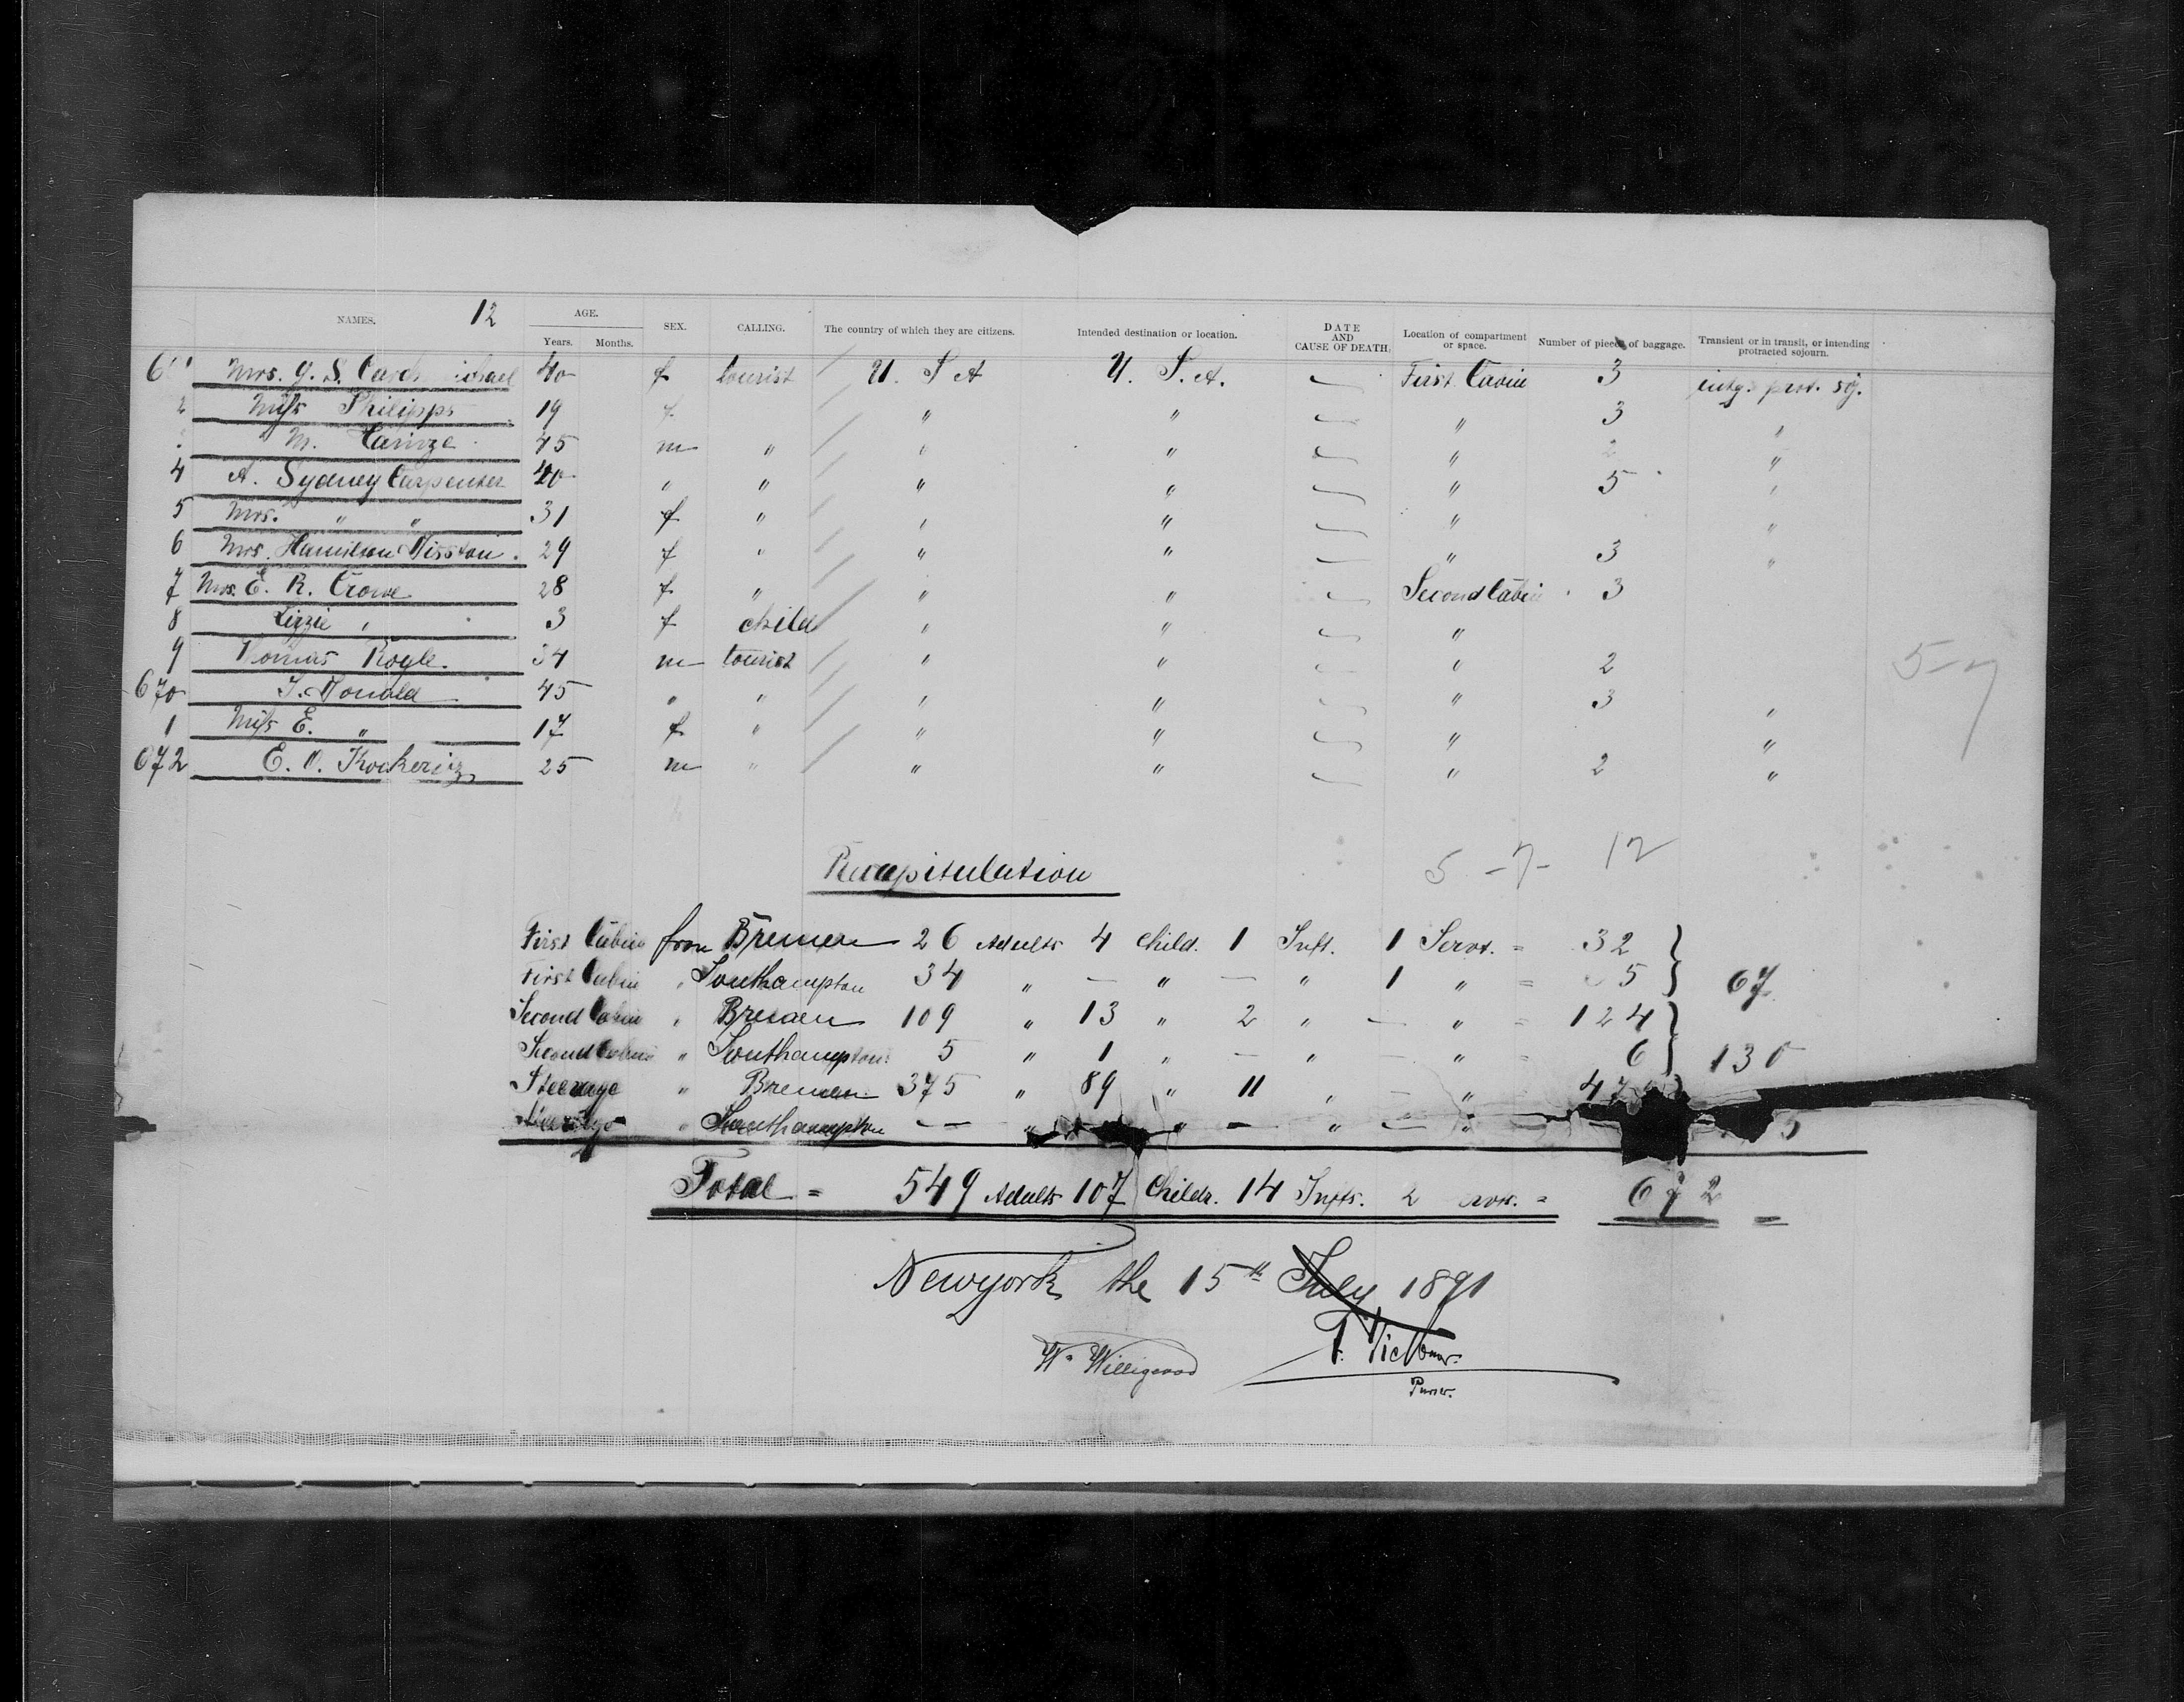 NAMES. 12 AGE. Years. Months. SEX. CALLING. The country of which they are citizens. Intended destination or location. DATE AND CAUSE OF DEATH. Location of compartment or space. Number of pieces of baggage. Transient or in transit, or intending protracted sojourn.
Mrs. G. S. 40 f tourist U. S. A U. S. A. First Cabin 3 intg. prot. soj.
2 Miss Philipps 19 f " " " 3 "
M. 45 m " " " " "
4 A. Sydney Carpenter 40 " " " " " 5 "
5 Mrs. " " 31 f " " " " "
6 Mrs. Hamilton Disston. 29 f " " " " 3 "
7 Mrs. E. R. Crowe 28 f " " " Second Cabin 3
8 Lizzie " 3 f child " " "
9 Thomas Royle. 34 m tourist " " " 2
670 T. Donald 45 " " " " " 3 "
1 Miss E. " 17 f " " " " "
672 E. 25 m " " " " 2 "
5-7
Recapitulation
5 - 7 - 12
First Cabin from Bremen 26 Adults 4 Child. 1 Inft. 1 Servt. = 32
First Cabin " Southampton 34 " — " — " 1 " = 5 67
Second Cabin " Bremen 109 " 13 " 2 " — " = 124
Second Cabin " Southampton 5 " 1 " — " — " = 6 130
Steerage " Bremen 375 " 89 " 11 " — "
Steerage " Southampton — " " — " — "
Total = 549 Adults 107 Childr. 14 Infts. 2 = 672
Newyork the 15th July 1891
W. Willigerod
Purser.